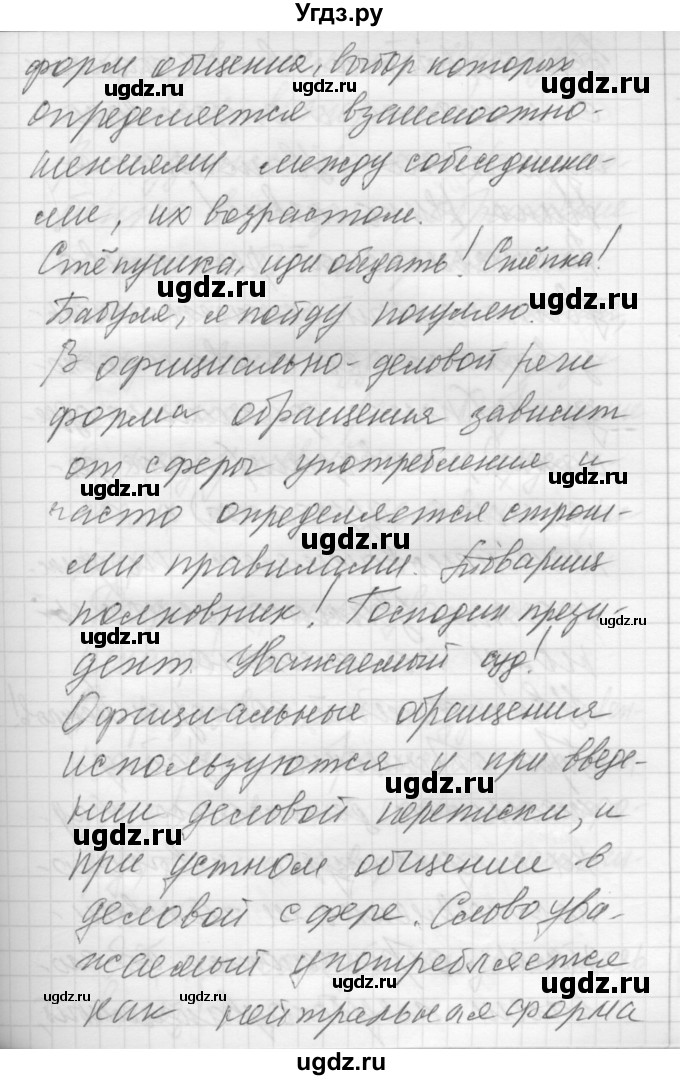 Угдз.ру
форм общения, выбор которых
определяется взаимоотно-
шениями между собеседника-
ми, их возрастом.
Стёпушка, иди обедать! Стёпка!
Бабуля, я пойду погуляю.
В официально-деловой речи
форма обращения зависит
от сферы употребления и
часто определяется строги-
ми правилами. Товарищ
полковник! Господин прези-
дент. Уважаемый суд!
Официальные обращения
используются и при введе-
нии деловой переписки, и
при устном общении в
деловой сфере. Слово ува-
жаемый употребляется
как нейтральная форма
ugdz.ru